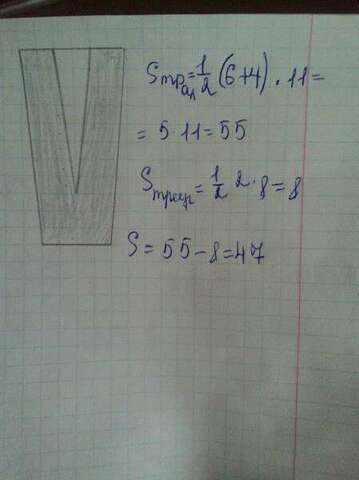 Sтрап = 1/2 (6+4) · 11 =
= 5 · 11 = 55
Sтреуг = 1/2 2 · 8 = 8
S = 55 - 8 = 47